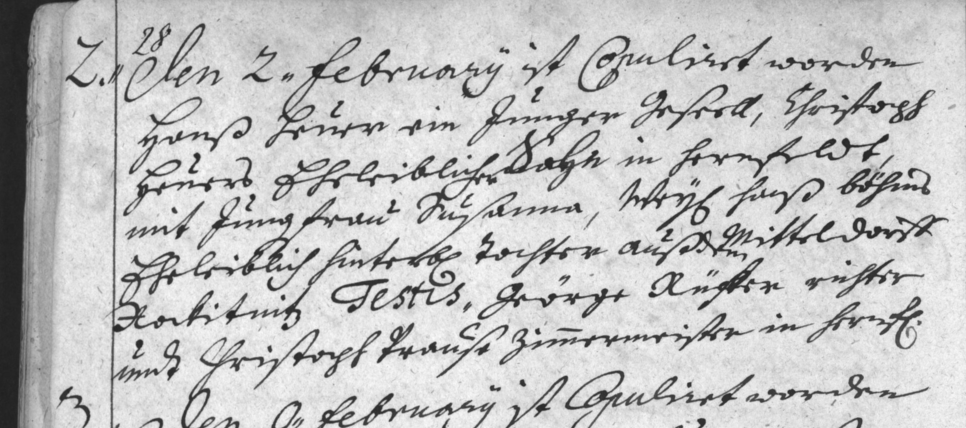 28
2. Den 2. February ist Copuliret worden
Hanß Heuer ein Junger Gesell, Christoph
Heuers Eheleiblicher Sohn in Hernfeldt,
mit Jungfrau Susanna, Weyl. Hanß Böhms
Eheleiblich hinterbl. Tochter außdem Mitteldorff
Rockitnitz Testes. Geörge Rücker richter
undt Christoph Trauß Zimmermeister in Hernf.
3 Den February ist Copuliret worden